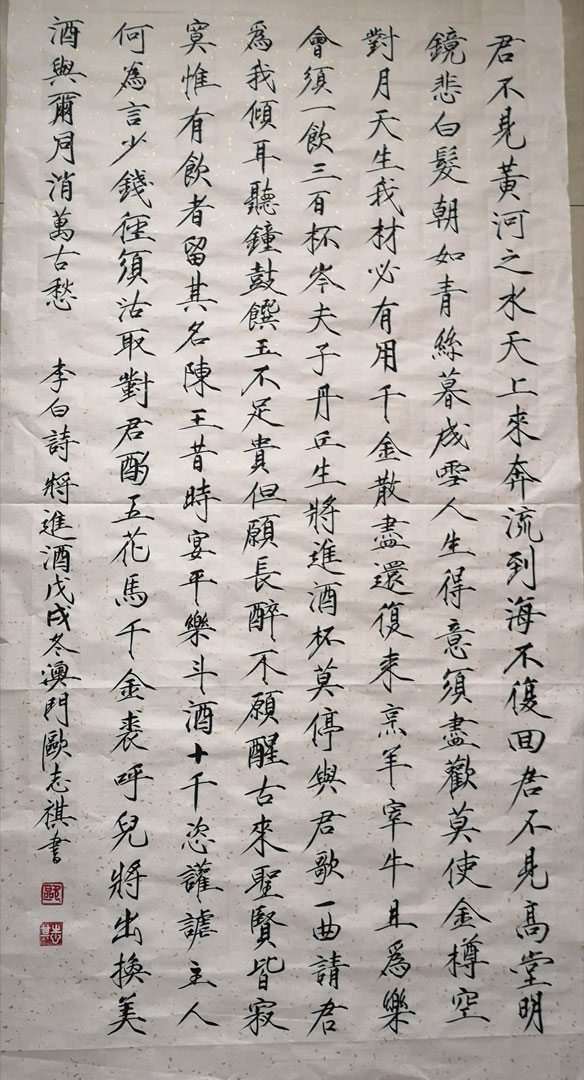 君不見黃河之水天上來奔流到海不復回君不見高堂明
鏡悲白髮朝如青絲暮成雪人生得意須盡歡莫使金樽空
對月天生我材必有用千金散盡還復來烹羊宰牛且為樂
會須一飲三百杯岑夫子丹丘生將進酒杯莫停與君歌一曲請君
為我傾耳聽鐘鼓饌玉不足貴但願長醉不願醒古來聖賢皆寂
寞惟有飲者留其名陳王昔時宴平樂斗酒十千恣讙謔主人
何為言少錢徑須沽取對君酌五花馬千金裘呼兒將出換美
酒與爾同消萬古愁 李白詩將進酒戊戌冬澳門歐志祺書